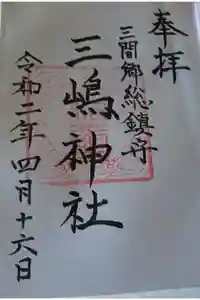 奉拝
三間郷総鎮守
三嶋神社
令和二年四月十六日